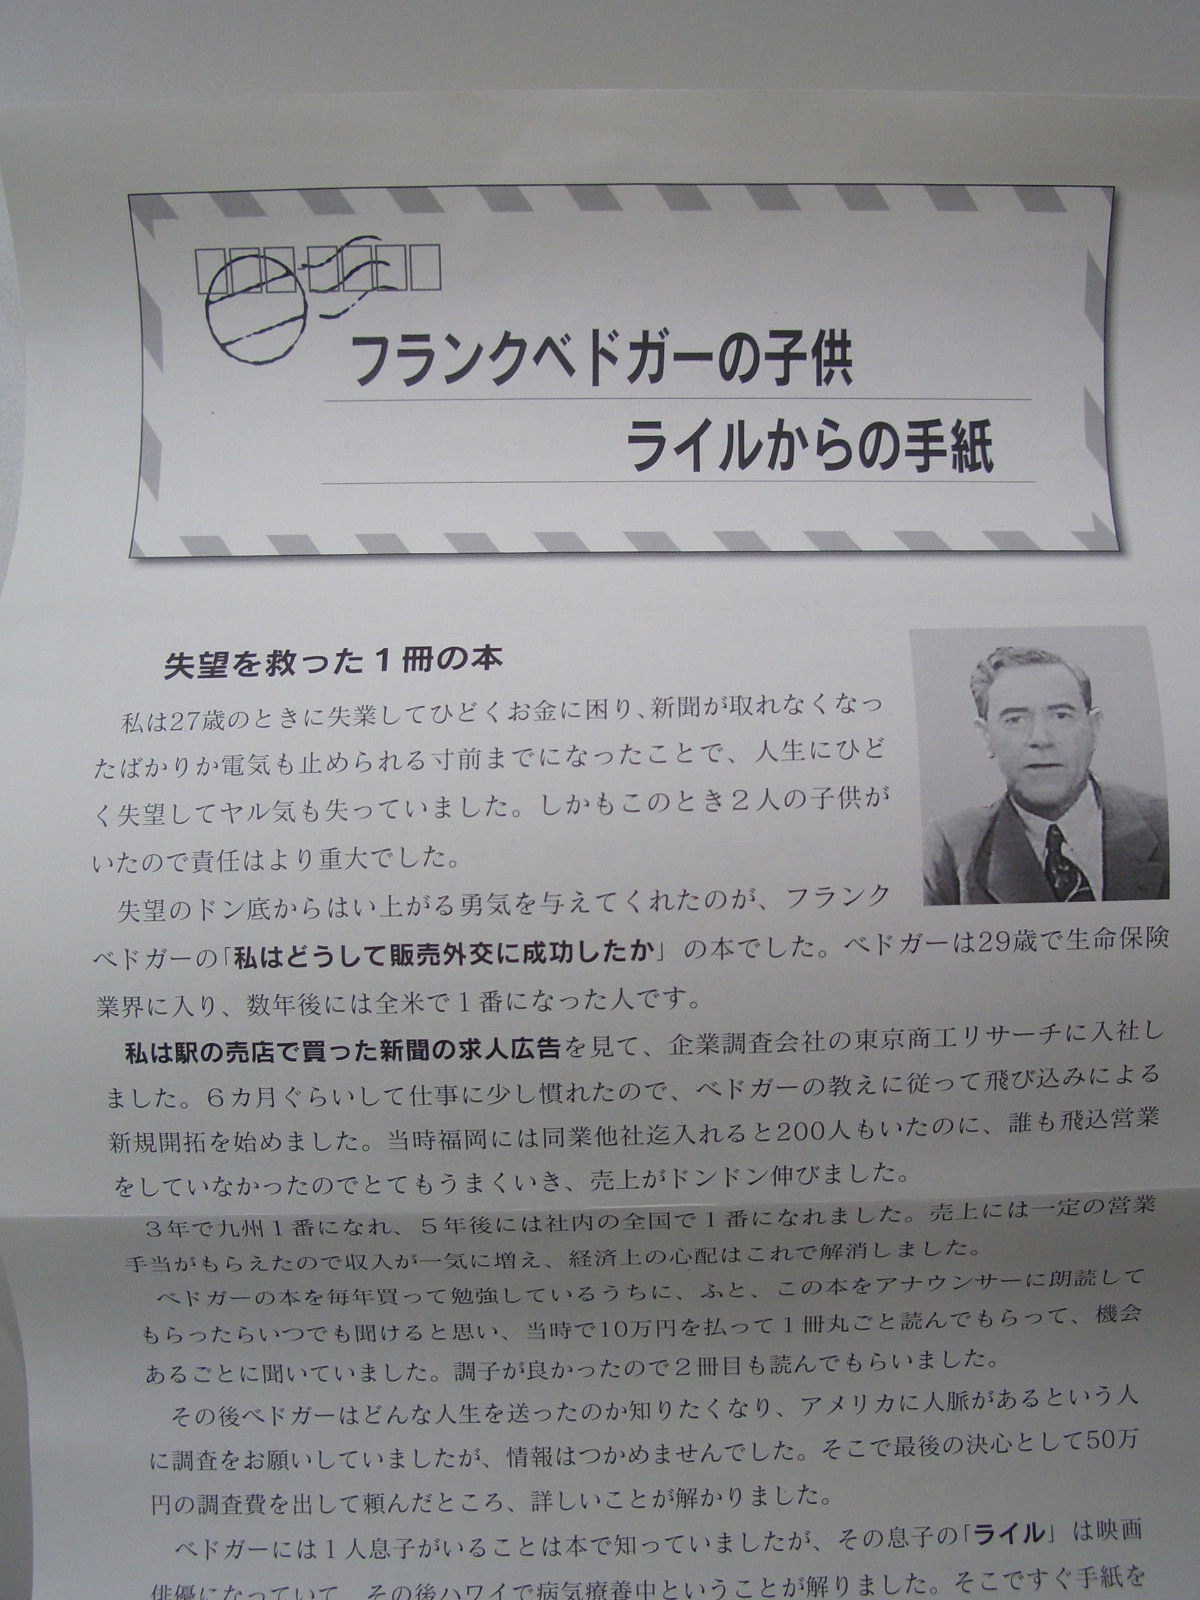 フランクベドガーの子供
ライルからの手紙
失望を救った１冊の本
私は27歳のときに失業してひどくお金に困り、新聞が取れなくなっ
たばかりか電気も止められる寸前までになったことで、人生にひど
く失望してヤル気も失っていました。しかもこのとき２人の子供が
いたので責任はより重大でした。
失望のドン底からはい上がる勇気を与えてくれたのが、フランク
ベドガーの「私はどうして販売外交に成功したか」の本でした。ベドガーは29歳で生命保険
業界に入り、数年後には全米で１番になった人です。
私は駅の売店で買った新聞の求人広告を見て、企業調査会社の東京商工リサーチに入社し
ました。６カ月ぐらいして仕事に少し慣れたので、ベドガーの教えに従って飛び込みによる
新規開拓を始めました。当時福岡には同業他社迄入れると200人もいたのに、誰も飛込営業
をしていなかったのでとてもうまくいき、売上がドンドン伸びました。
３年で九州１番になれ、５年後には社内の全国で１番になれました。売上には一定の営業
手当がもらえたので収入が一気に増え、経済上の心配はこれで解消しました。
ベドガーの本を毎年買って勉強しているうちに、ふと、この本をアナウンサーに朗読して
もらったらいつでも聞けると思い、当時で10万円を払って１冊丸ごと読んでもらって、機会
あるごとに聞いていました。調子が良かったので２冊目も読んでもらいました。
その後ベドガーはどんな人生を送ったのか知りたくなり、アメリカに人脈があるという人
に調査をお願いしていましたが、情報はつかめませんでした。そこで最後の決心として50万
円の調査費を出して頼んだところ、詳しいことが解かりました。
ベドガーには１人息子がいることは本で知っていましたが、その息子の「ライル」は映画
俳優になっていて、その後ハワイで病気療養中ということが解りました。そこですぐ手紙を